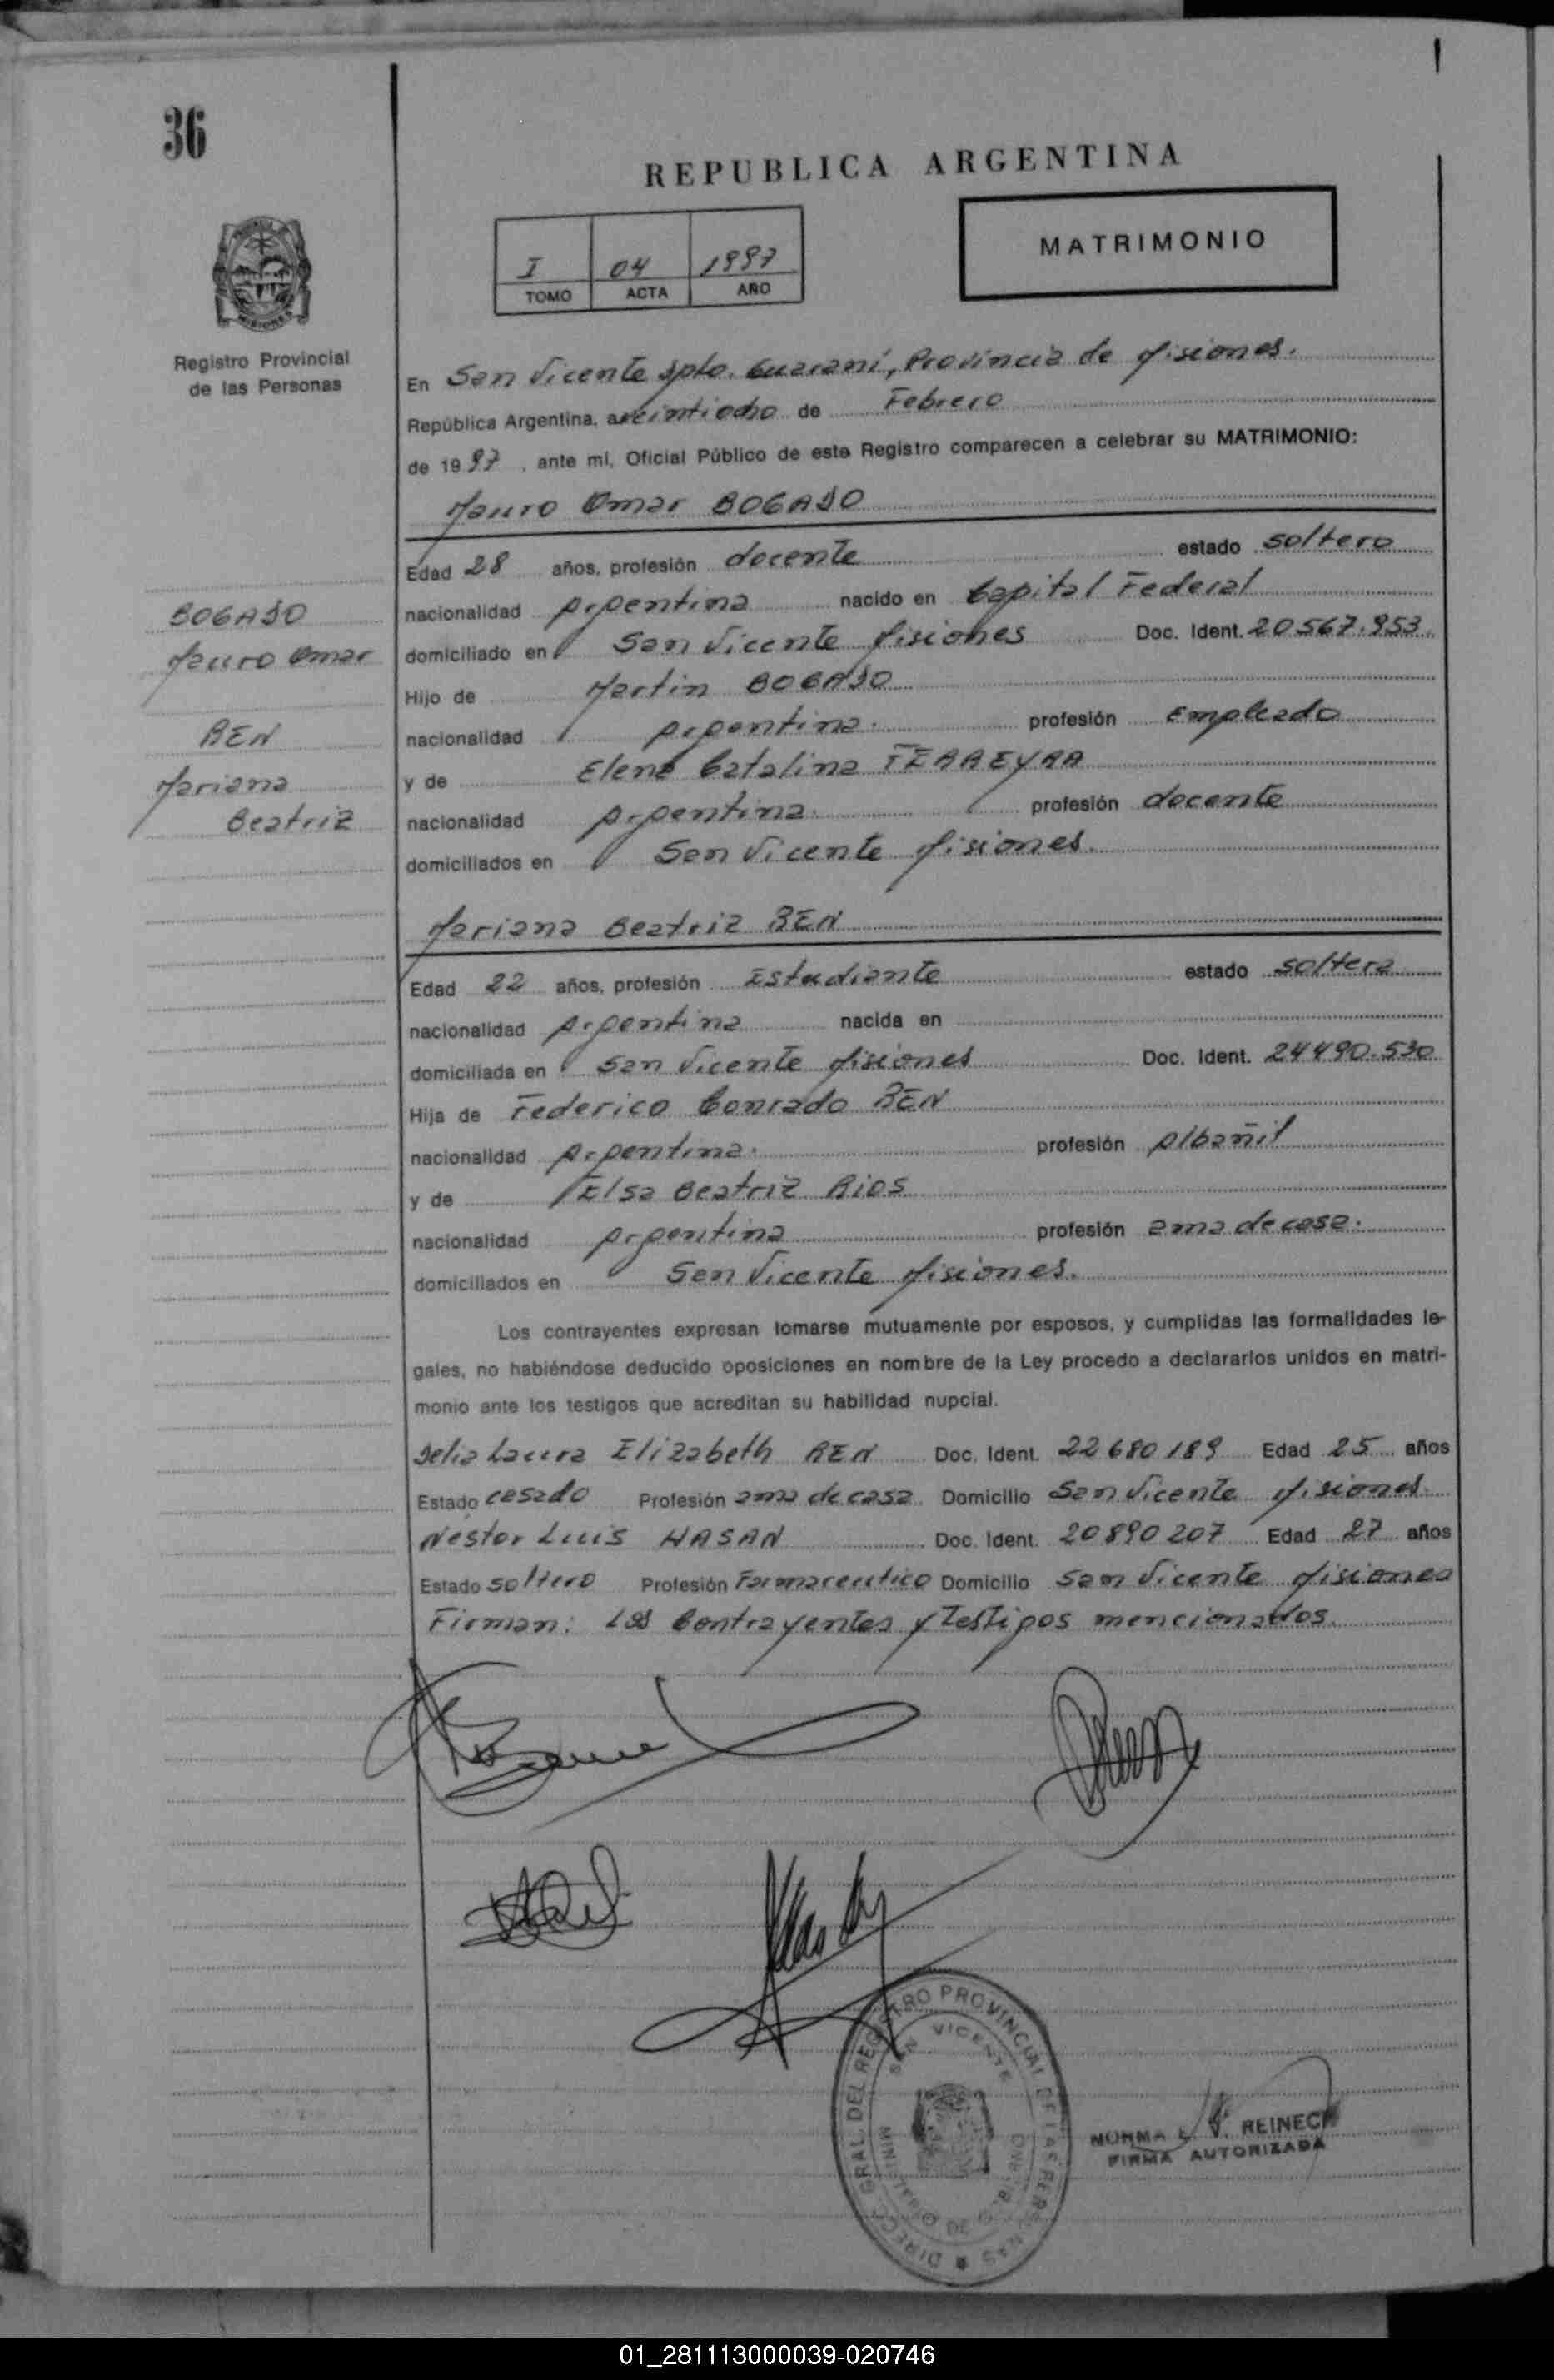 36
REPUBLICA ARGENTINA
MATRIMONIO
I 04 1997
TOMO ACTA AÑO
Registro Provincial
de las Personas
En San Vicente Dpto. Guaraní, Provincia de Misiones.
República Argentina, a veintiocho de Febrero
de 1997, ante mi, Oficial Público de este Registro comparecen a celebrar su MATRIMONIO:
Mauro Omar BOGADO
Edad 28 años, profesión docente estado soltero
nacionalidad Argentina nacido en Capital Federal
domiciliado en San Vicente Misiones Doc. Ident. 20567.953
Hijo de Martin BOGADO
nacionalidad Argentina. profesión Empleado
y de Elena Catalina FERREYRA
nacionalidad Argentina. profesión docente
domiciliados en San Vicente Misiones.
BOGADO
Mauro Omar
REN
Mariana
Beatriz
Mariana Beatriz REN
Edad 22 años, profesión Estudiante estado soltera
nacionalidad Argentina nacida en
domiciliada en San Vicente Misiones Doc. Ident. 24490.530
Hija de Federico Conrado REN
nacionalidad Argentina. profesión Albañil
y de Elsa Beatriz RIOS
nacionalidad Argentina profesión ama de casa.
domiciliados en San Vicente Misiones.
Los contrayentes expresan tomarse mutuamente por esposos, y cumplidas las formalidades le-
gales, no habiéndose deducido oposiciones en nombre de la Ley procedo a declararlos unidos en matri-
monio ante los testigos que acreditan su habilidad nupcial.
Delia Laura Elizabeth REN Doc. Ident. 22680189 Edad 25 años
Estado casado Profesión ama de casa Domicilio San Vicente Misiones
Néstor Luis HASAN Doc. Ident. 20890207 Edad 27 años
Estado soltero Profesión Farmaceutico Domicilio San Vicente Misiones
Firman: Los Contrayentes y Testigos mencionados.
DIRECC. GRAL. DEL REGISTRO PROVINCIAL DE LAS PERSONAS
SAN VICENTE
MINIST. DE GOBIERNO
NORMA E. V. REINECK
FIRMA AUTORIZADA
01_281113000039-020746